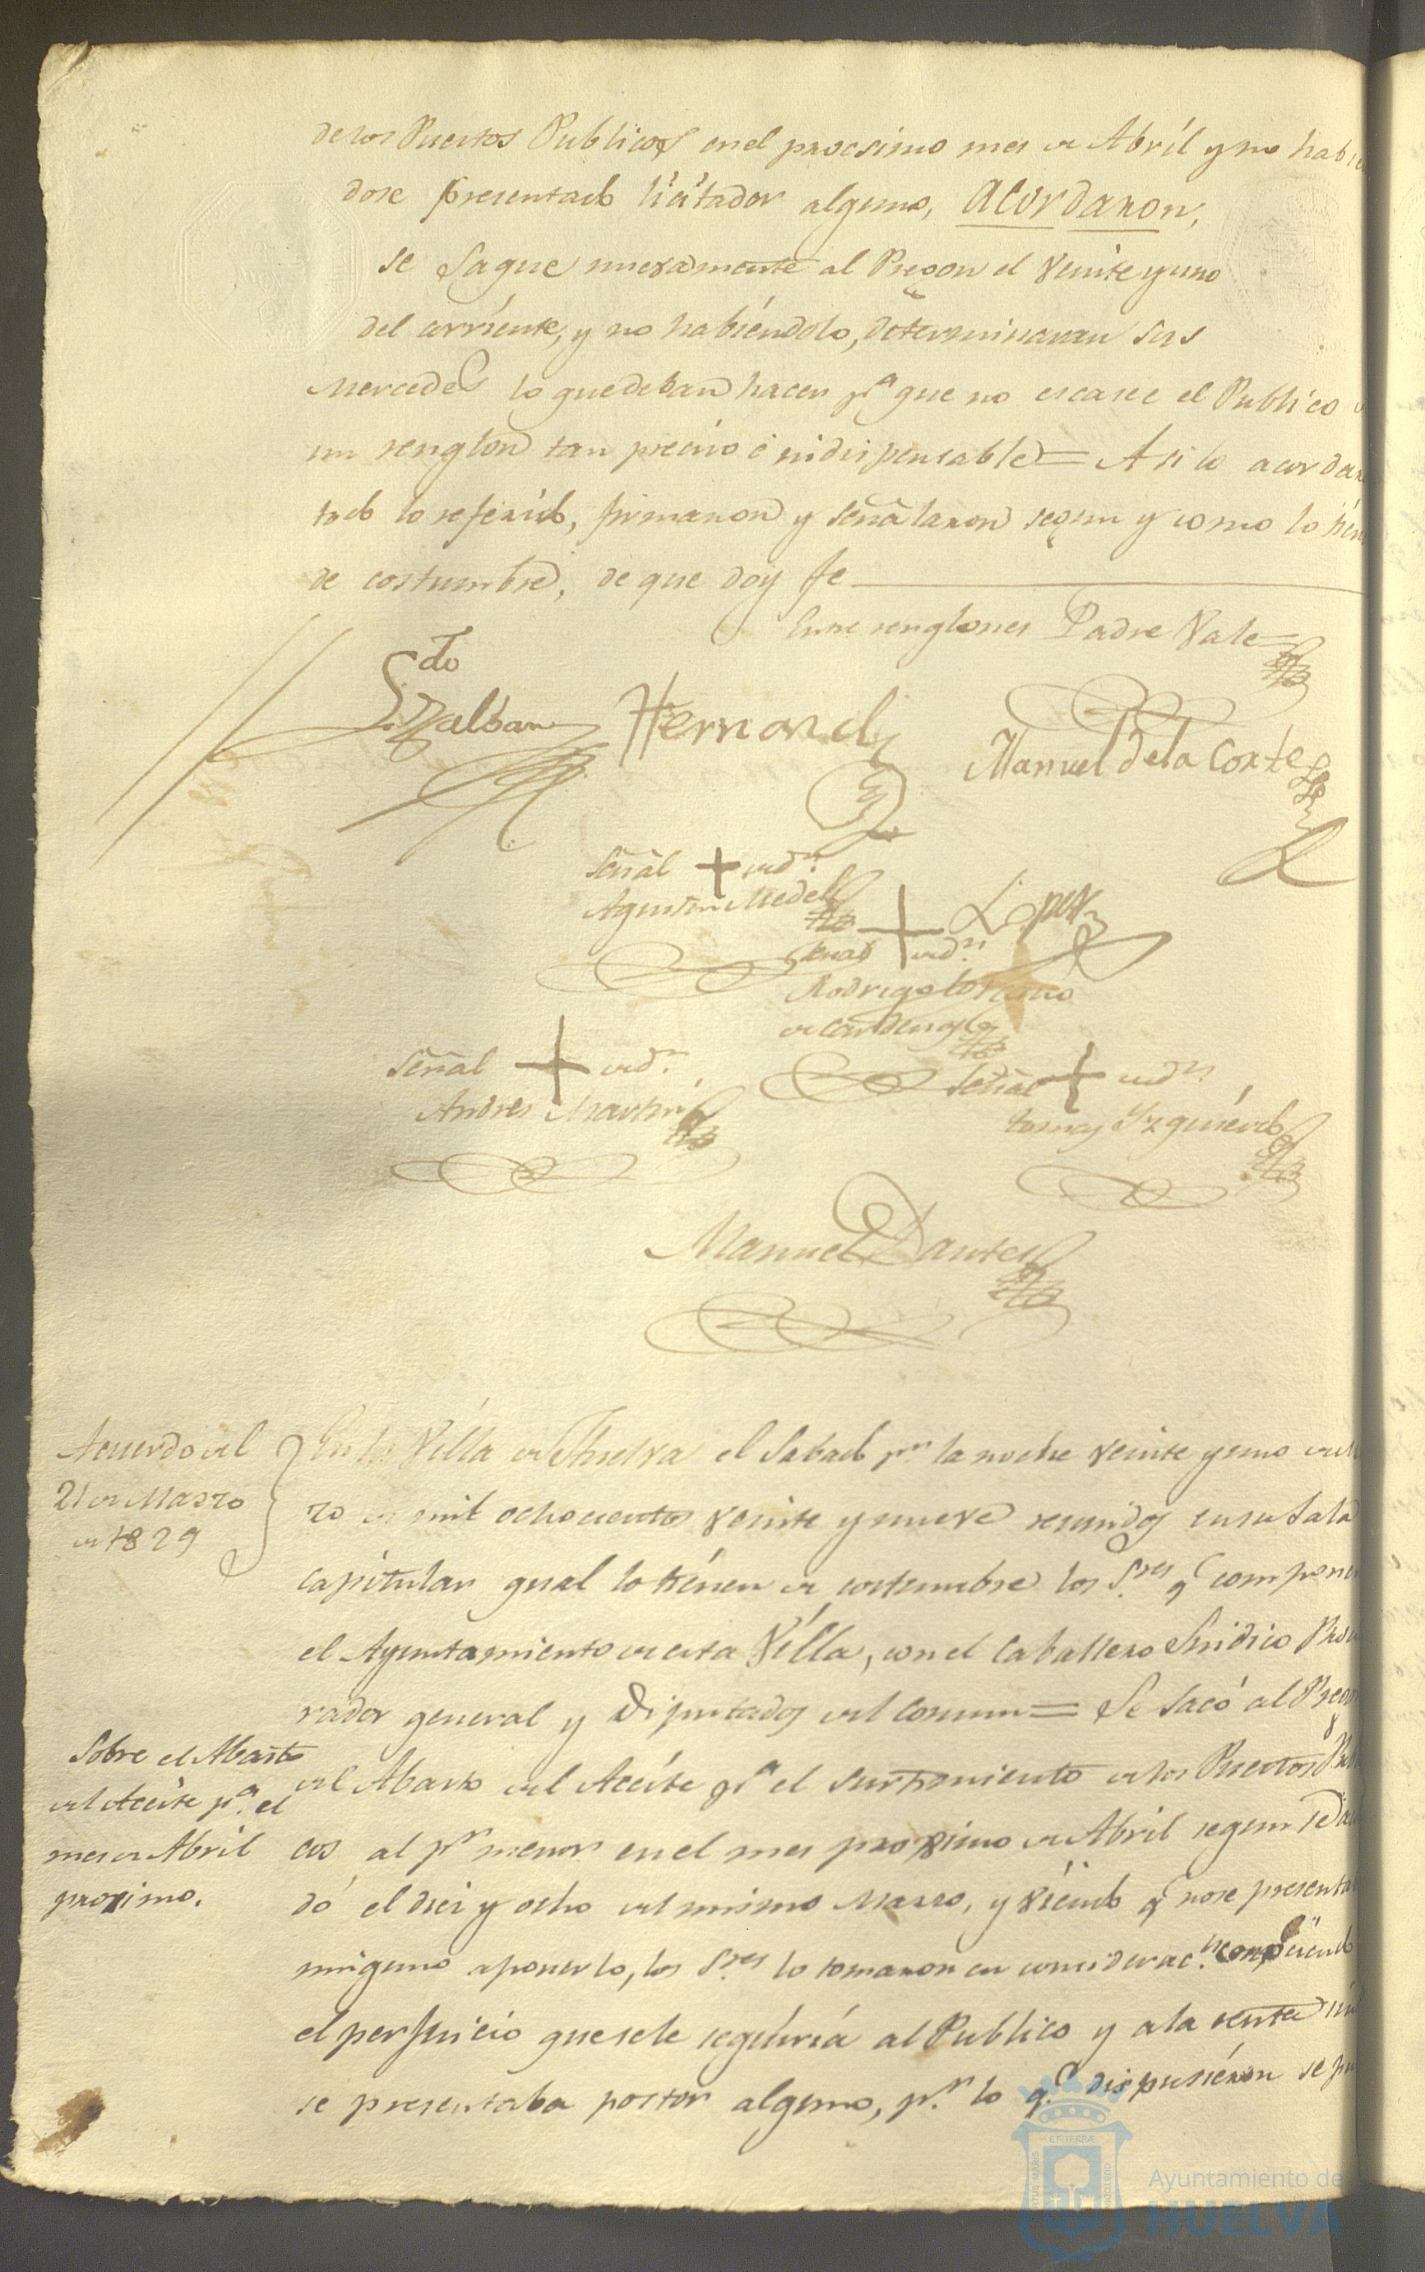 de los Puestos Publicos en el procsimo mes de Abril y no habien
dose presentado licitador alguno, Acordaron,
se saque nuevamente al Pregon el Veinte y uno
del corriente, y no habiéndolo, determinaran sus
Mercedes lo que deban hacer pa que no escasee el Publico
un renglon tan preciso é indispensable = Asi lo acordar
todo lo referido, firmaron y señalaron segun y como lo tien
de costumbre, de que doy fe
Entre renglones Padre Vale
Hernand
Manuel de la Corte
Señal + de dn
Agustin Medel
Lopez
Señal + de dn
Rodrigo
Señal + de dn
Andres Martin
Señal + de dn
tomas Yzquierdo
Manuel Dantes
Acuerdo del
21 de Marzo
de 1829
En la Villa de Huelva el Sabado pr la noche Veinte y uno de Ma
zo de mil ochocientos Veinte y nueve reunidos en su Sala
Capitular qual lo tienen de costumbre los Sres q componen
el Ayuntamiento de esta Villa, con el Caballero Sindico Procu
rador general y Diputados del Comun = Se sacó al Pregon
Sobre el Abasto
del Aceite pa el
mes de Abril
proximo.
del Abasto del Aceite pa el surtimiento de los Puestos Publi
cos al pr menor en el mes proximo de Abril segun se acor
dó el diez y ocho del mismo Marzo, y Viendo q no se presenta
ninguno aponerlo, los Sres lo tomaron en consideracn
el perjuicio que se le seguiria al Publico y a la renta si no
se presentaba postor alguno, pr lo q. dispusieron se
ET TERRÆ
Ayuntamiento de
HUELVA